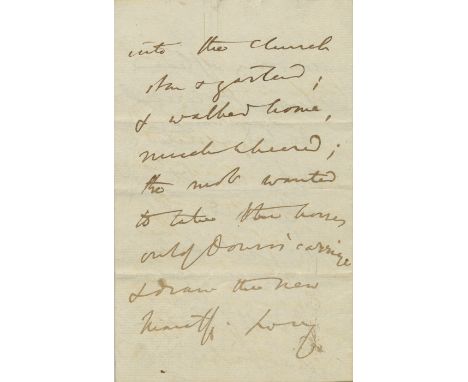 into the church
star & garter;
& walked home,
much cheered;
the mob wanted
to take the horses
out of Down's carriage
& draw the new